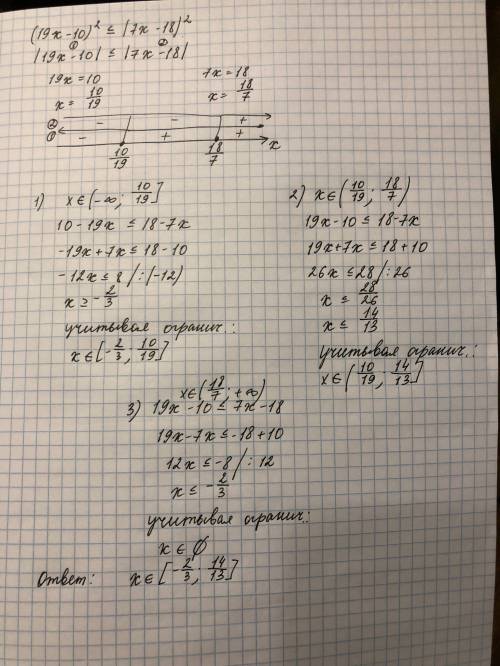 (19x-10)² ≤ (7x-18)²
① ②
|19x-10| ≤ |7x-18|
19x=10 7x=18
x= 10/19 x= 18/7
② - - +
① - + + x
10/19 18/7
1) x∈(-∞; 10/19]
10-19x ≤ 18-7x
-19x+7x ≤ 18-10
-12x ≤ 8 /:(-12)
x ≥ -2/3
учитывая огранич.:
x∈[-2/3; 10/19]
2) x∈(10/19; 18/7)
19x-10 ≤ 18-7x
19x+7x ≤ 18+10
26x ≤ 28 /:26
x ≤ 28/26
x ≤ 14/13
учитывая огранич.:
x∈(10/19; 14/13]
x∈(18/7; +∞)
3) 19x-10 ≤ 7x-18
19x-7x ≤ -18+10
12x ≤ -8 /:12
x ≤ -2/3
учитывая огранич.:
x∈∅
Ответ: x∈[-2/3; 14/13]